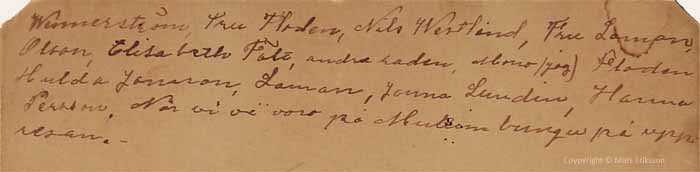 Winnerström, Fru Floden, Nils Westlind, Fru Loman,
Olson, Elisabeth Fält, andra raden, Mono (jag) Floden
Hulda Jonson, Loman, Jonna Lundin, Hanna
Persson, När vi vi voro på på upp
resan.
Copyright © Mats Eriksson